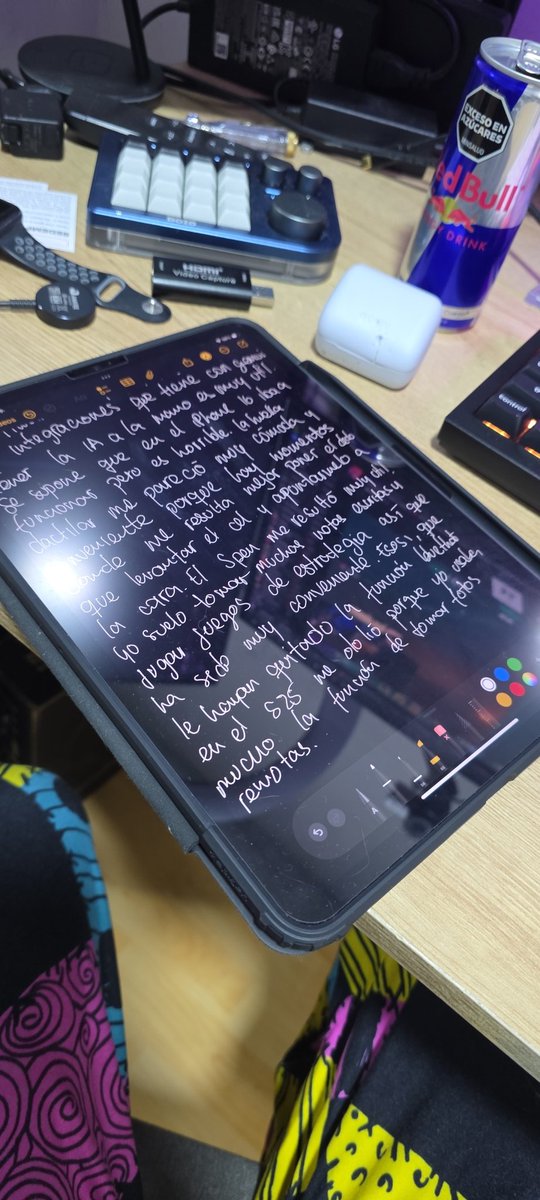 EXCESO EN
AZÚCARES
MINSALUD
Red Bull
ENERGY DRINK
HDMI
Video Capture
control
integraciones que tiene con gemini
tener la IA a la mano es muy útil.
Se supone que en el iPhone lo iba a
funcionar pero es horrible. la huella
dactilar me pareció muy cómoda y
conveniente porque hay momentos
donde me resulta mejor poner el dedo
que levantar el cel y apuntarmelo a
la cara. El Spen me resultó muy útil
yo suelo tomar muchas notas escritas y
jugar juegos de estrategia así que
ha sido muy conveniente. Eso sí, que
le hayan quitado la función bluetooth
en el S25 me dolió porque yo usaba
mucho la función de tomar fotos
remotas.